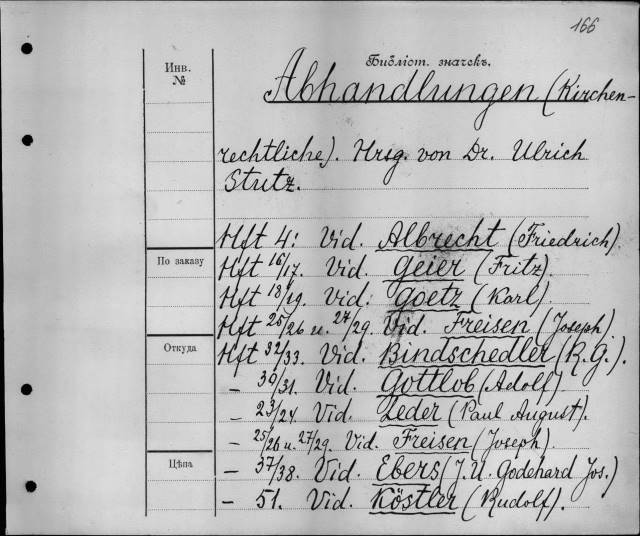 166
Инв.
№
Бібліот. значекъ.
Abhandlungen (Kirchen-
rechtliche). Hrsg. von Dr. Ulrich
Stutz.
Hft 4: Vid. Albrecht (Friedrich)
По заказу
Hft 16/17. Vid. Geier (Fritz).
Hft 18/19. Vid. Goetz (Karl).
Hft 25/26 u. 27/29. Vid. Freisen (Joseph)
Откуда
Hft 32/33. Vid. Bindschedler (R.G.).
– 30/31. Vid. Gottlob (Adolf).
– 23/24. Vid. Leder (Paul August).
– 25/26 u. 27/29. Vid. Freisen (Joseph).
Цѣна
– 37/38. Vid. Ebers (J.U. Godehard Jos.)
– 51. Vid. Köstler (Rudolf).